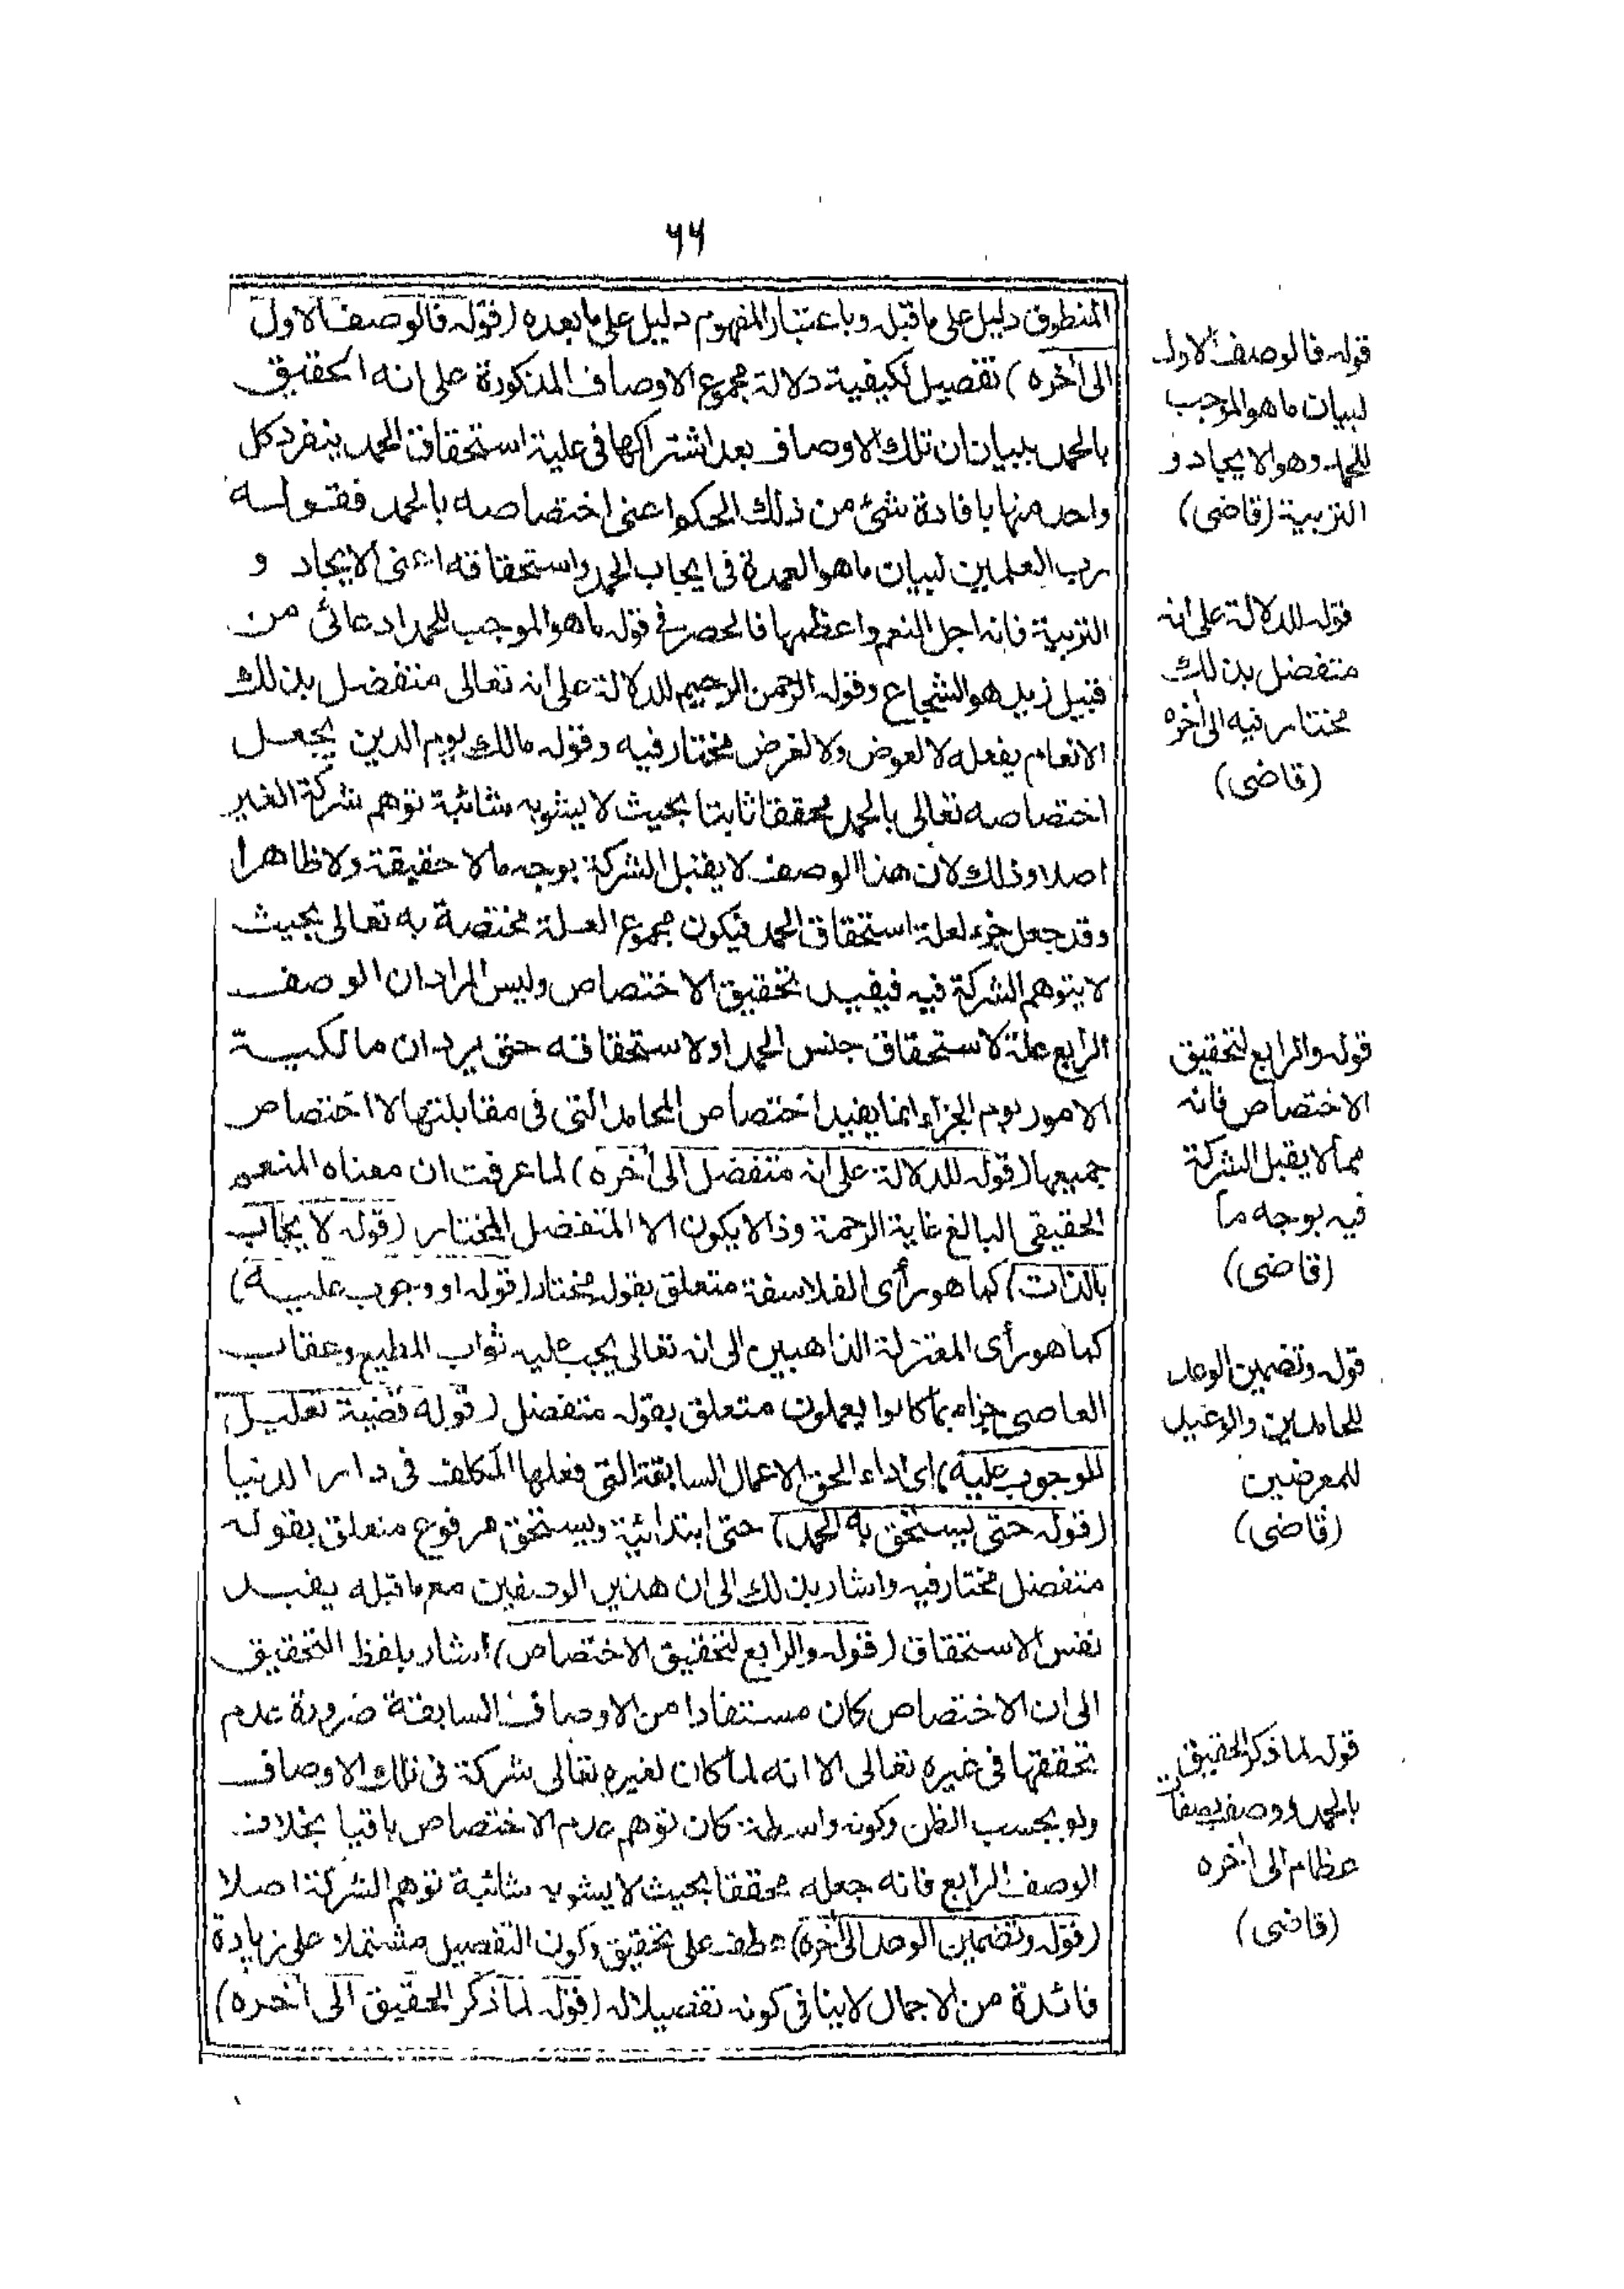 ٦٦
المنطوق دليل على ما قبله وباعتبار المفهوم دليل على ما بعده (قوله فالوصف الاول
الى أخره) تفصيل لكيفية دلالة مجموع الاوصاف المذكورة على انه الحقيق
بالحمد ببيان ان تلك الاوصاف بعد اشتراكها فى علية استحقاق الحمد ينفرد كل
واحد منها بافادة شئ من ذلك الحكم اعنى اختصاصه بالحمد فقوله
رب العلمين لبيان ما هو العمدة فى ايجاب الحمد واستحقاقه اعنى الايجاد و
التربية فانه اجل النعم واعظمها فالحصر فى قوله ما هو الموجب للحمد ادعائى من
قبيل زيد هو الشجاع وقوله الرحمن الرحيم للدلالة على انه تعالى متفضل بذلك
الانعام يفعله لا لعوض ولا لغرض مختار فيه وقوله مالك يوم الدين يجعل
اختصاصه تعالى بالحمد محققا ثابتا بحيث لا يشوبه شائبة توهم شركة الغير
اصلا وذلك لان هذا الوصف لا يقبل الشركة بوجه ما لا حقيقة ولا ظاهرا
وقد جعل جزء لعلة استحقاق الحمد فيكون مجموع العلة مختصة به تعالى بحيث
لا يتوهم الشركة فيه فيفيد تحقيق الاختصاص وليس المراد ان الوصف
الرابع علة لاستحقاق جنس الحمد او لاستحقاقه حتى يرد ان مالكية
الامور يوم الجزاء انما يفيد اختصاص المحامد التى فى مقابلتها لا اختصاص
جميعها (قوله للدلالة على انه متفضل الى أخره) لما عرفت ان معناه المنعم
الحقيقى البالغ غاية الرحمة وذا لا يكون الا المتفضل المختار (قوله لا يجاب
بالذات) كما هو رأى الفلاسفة متعلق بقوله مختار (قوله او وجوب عليه)
كما هو رأى المعتزلة الذاهبين الى انه تعالى يجب عليه ثواب المطيع وعقاب
العاصى جزاء بما كانوا يعملون متعلق بقوله متفضل (قوله قضية تعليل
للوجوب عليه) اى اداء لحق الاعمال السابقة التى فعلها المكلف فى دار الدنيا
(قوله حتى يستحق به الحمد) حتى ابتدائية ويستحق مرفوع متعلق بقوله
متفضل مختار فيه واشار بذلك الى ان هذين الوصفين مع ما قبله يفيد
نفس الاستحقاق (قوله والرابع لتحقيق الاختصاص) اشار بلفظ التحقيق
الى ان الاختصاص كان مستفادا من الاوصاف السابقة ضرورة عدم
تحققها فى غيره تعالى الا انه لما كان لغيره تعالى شركة فى تلك الاوصاف
ولو بحسب الظن وكونه واسطة كان توهم عدم الاختصاص باقيا بخلاف
الوصف الرابع فانه جعله محققا بحيث لا يشوبه شائبة توهم الشركة اصلا
(قوله وتضمين الوعد الى أخره) عطف على تحقيق وكون التفصيل مشتملا على زيادة
فائدة من الاجمال لا ينافى كونه تفصيلا له (قوله لما ذكر الحقيق الى أخره)
قوله فالوصف الاول
لبيان ما هو الموجب
للحمد وهو الايجاد و
التربية (قاضى)
قوله للدلالة على انه
متفضل بذلك
مختار فيه الى أخره
(قاضى)
قوله والرابع لتحقيق
الاختصاص فانه
مما لا يقبل الشركة
فيه بوجه ما
(قاضى)
قوله وتضمين الوعد
للحامدين والوعيد
للمعرضين
(قاضى)
قوله لما ذكر الحقيق
بالحمد ووصف بصفات
عظام الى أخره
(قاضى)